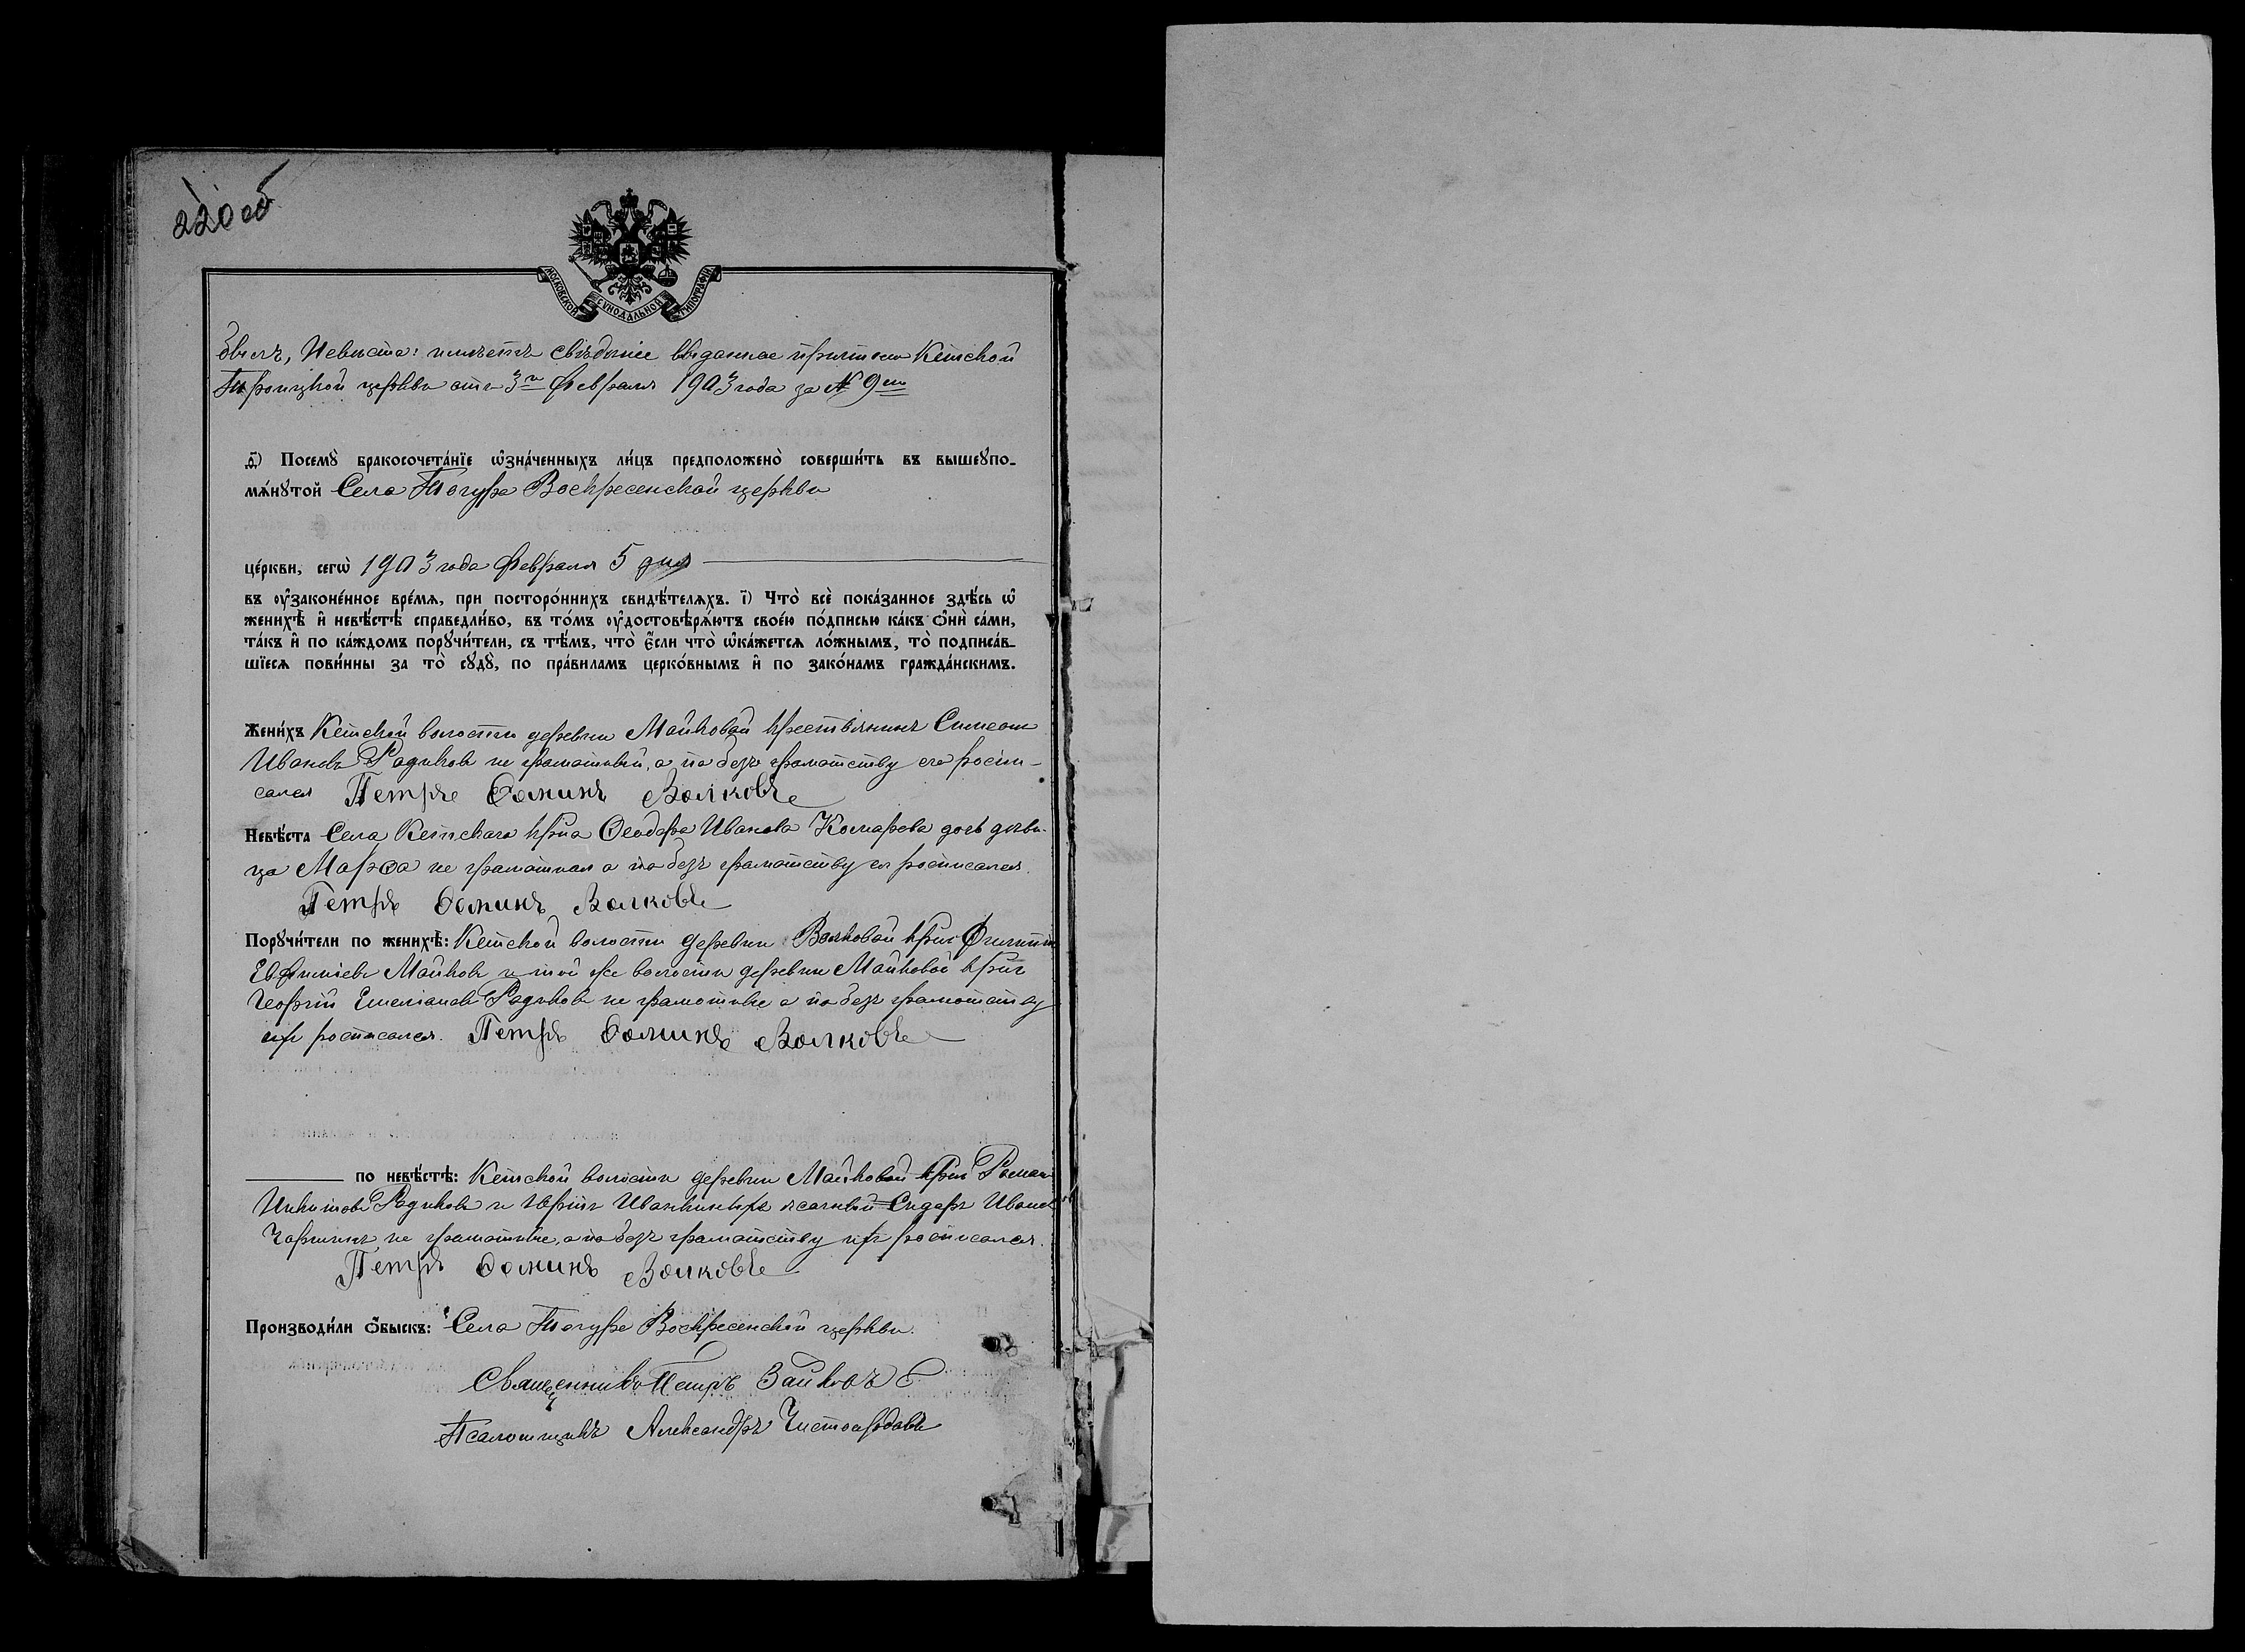 220 об
МОСКОВСКОЙ СѴНОДАЛЬНОЙ ТИПОГРАФІИ
Невѣста: имѣетъ свѣдѣніе выданное причтомъ Кетской
Троицкой церкви отъ 3го Февраля 1903 года за № 9мъ
д҃) Посемꙋ̀ бракосочета́нїе ѡ҆зна́ченныхъ ли́цъ предположено̀ соверши́ть въ вышеꙋпо-
мѧ́нꙋтой Села Тогура Воскресенской церкви
це́ркви, сегѡ̀ 1903 года Февраля 5 дня
въ ᲂу҆законе́нное вре́мѧ, при посторо́ннихъ свидѣ́телѧхъ. і҃) Что̀ всѐ пока́занное здѣ́сь ѡ҆
женихѣ̀ и҆ невѣ́стѣ справедли́во, въ то́мъ ᲂу҆достовѣрѧ́ютъ свое́ю по́дписью ка́къ ѻ҆нѝ са́ми,
та́къ и҆ по ка́ждомъ порꙋчи́тели, съ тѣ́мъ, что̀ є҆́сли что̀ ѡ҆ка́жетсѧ ло́жнымъ, то̀ подписа́в-
шїесѧ пови́нны за то̀ сꙋдꙋ̀, по пра́виламъ церко́внымъ и҆ по зако́намъ гражда́нскимъ.
Жени́хъ Кетской волости деревни Майковой крестьянинъ Симеонъ
Ивановъ Родиковъ не грамотный, а по безграмотству его роспи-
сался Петръ Ѳоминъ Волковъ
Невѣ́ста Села Кетскаго кр҃на Ѳеодора Иванова Комарова дочь дѣви-
ца Марѳа не грамотная а по безграмотству ея росписался.
Петръ Ѳоминъ Волковъ
Порꙋчи́тели по женихѣ̀: Кетской волости деревни Волковой кр҃нъ Филиппъ
Евфиміевъ Майковъ и той же волости деревни Майковой кр҃нъ
Георгій Емеліановъ Родиковъ не грамотные а по безграмотству
ихъ росписался. Петръ Ѳоминъ Волковъ
по невѣ́стѣ: Кетской волости деревни Майковой кр҃нъ Романъ
Никитовъ Родиковъ и Сидоръ Ивановъ
не грамотные, а по безграмотству ихъ росписался.
Петръ Ѳоминъ Волковъ
Производи́ли ѻ҆́быскъ: Села Тогура Воскресенской церкви.
Священникъ Петръ Зайковъ
Псаломщикъ Александръ